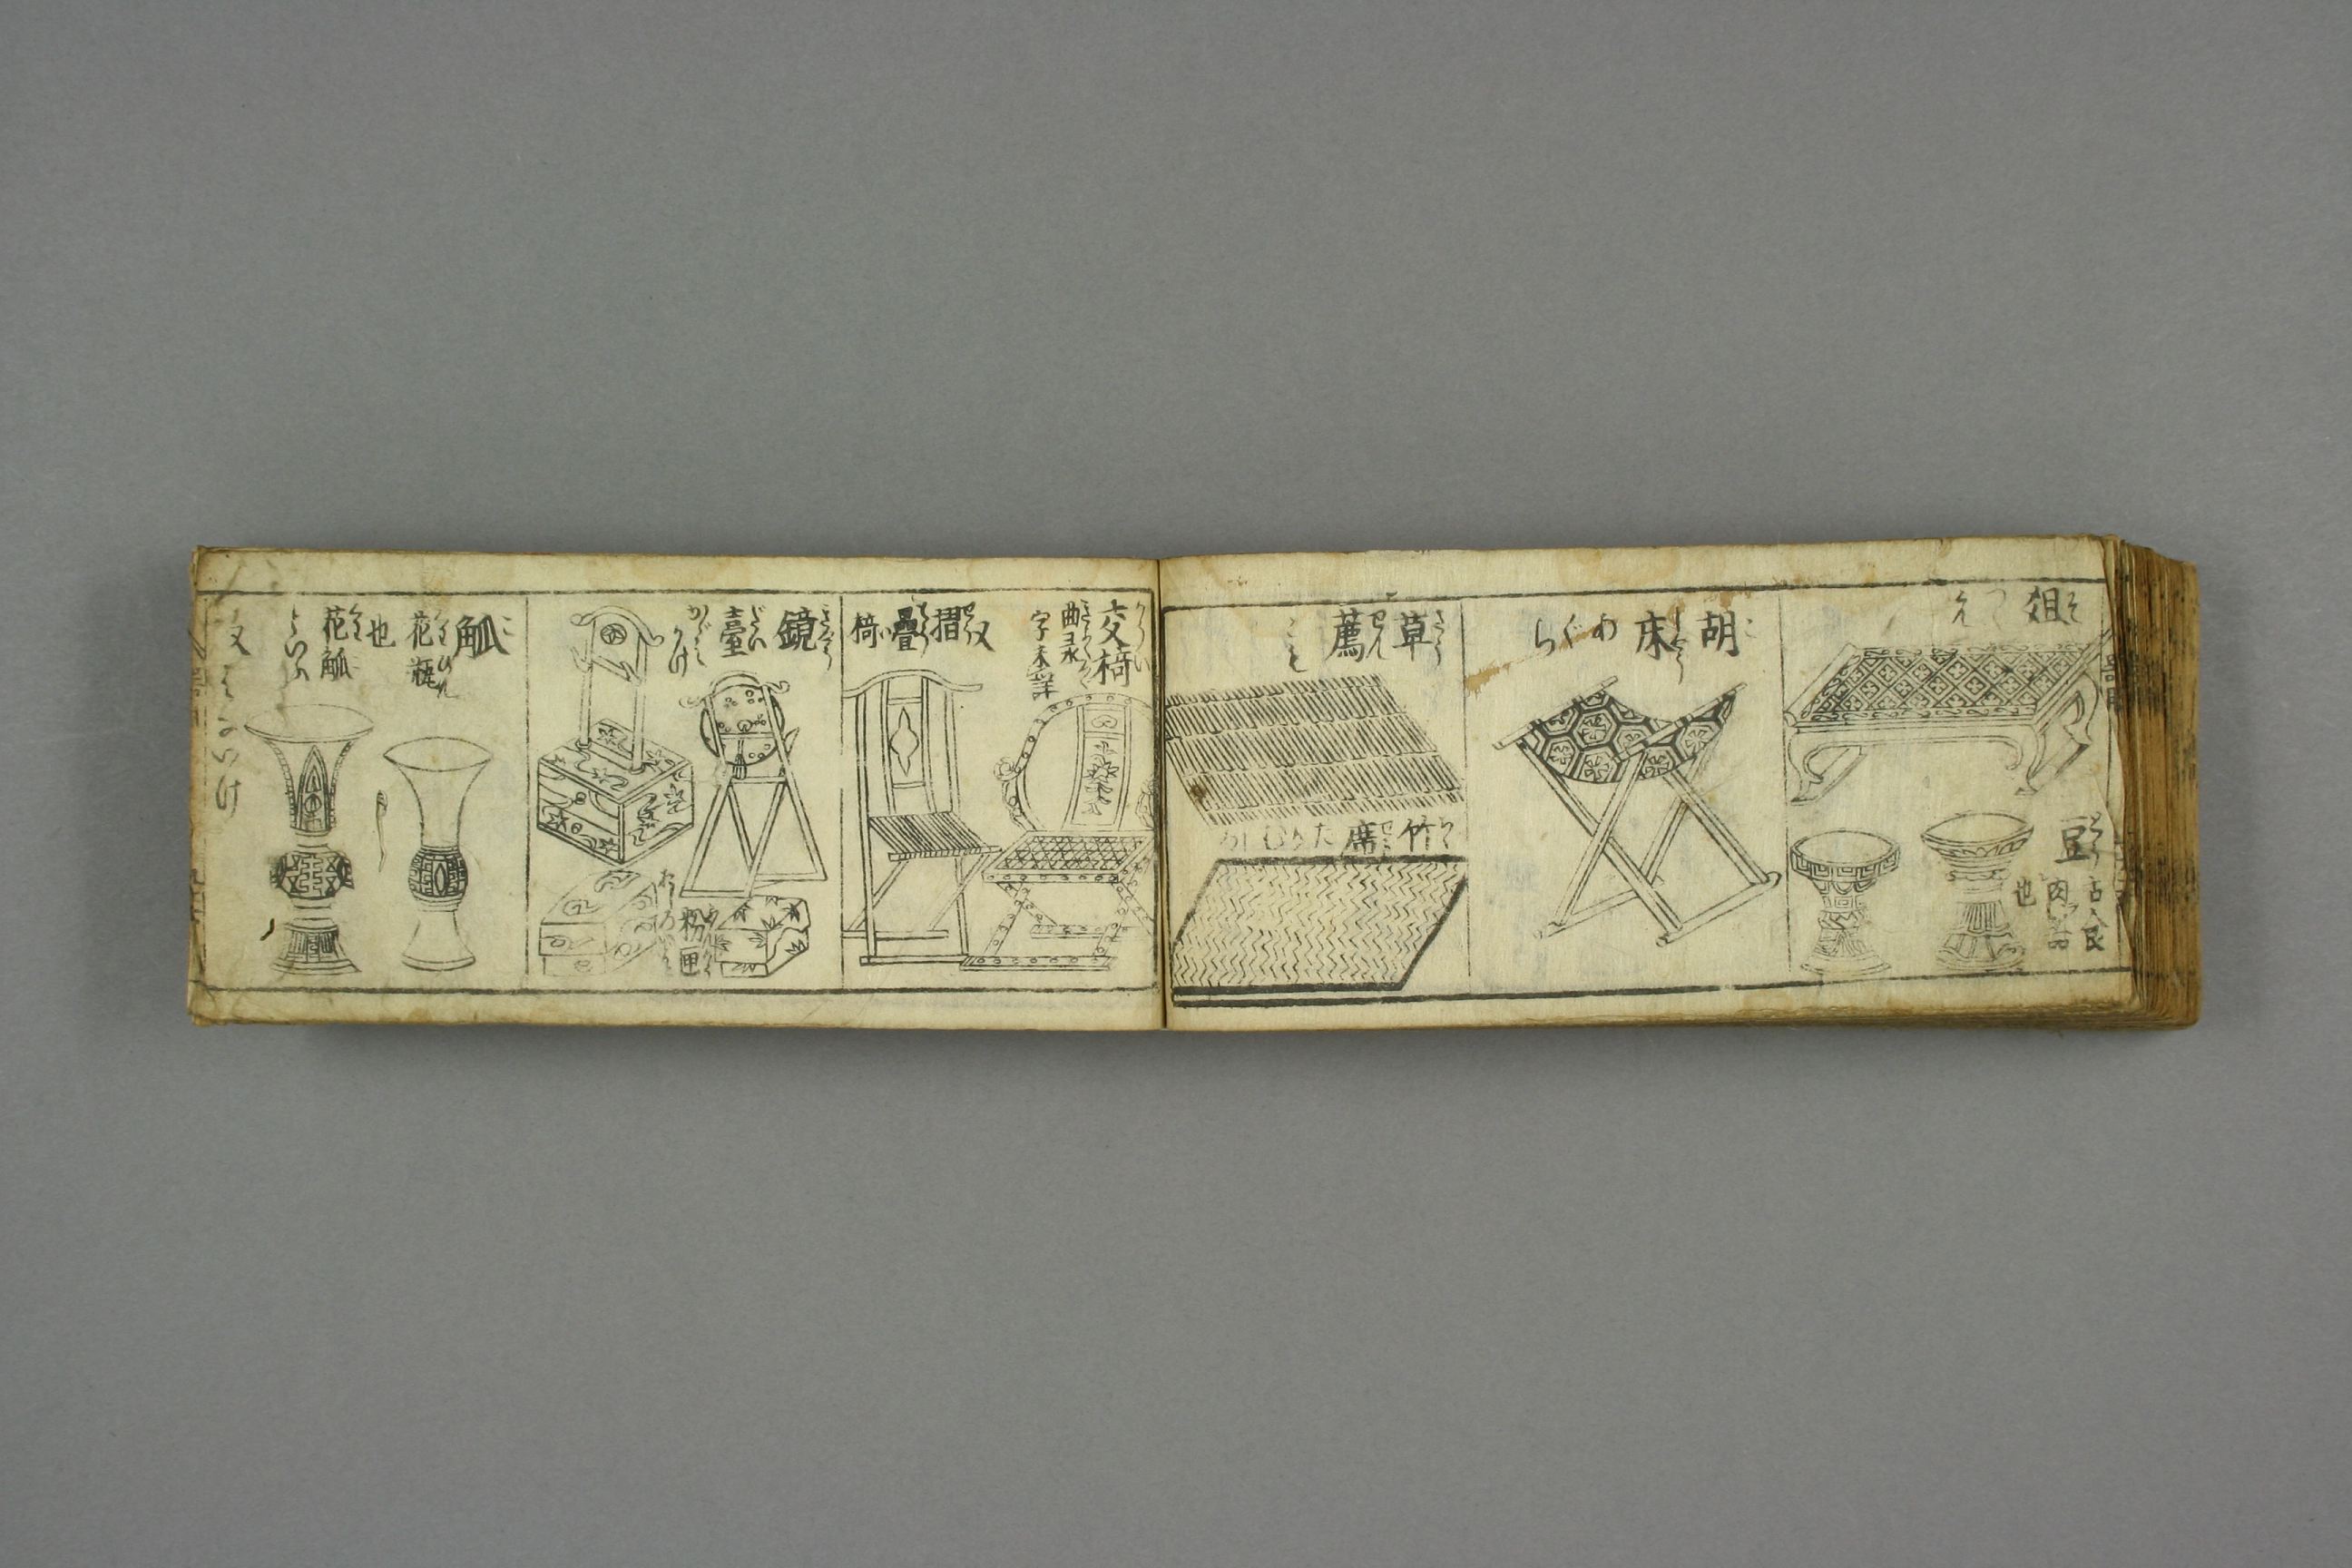 俎 そ
つくえ
豆
古食
肉器
也
胡床 こしやう
あぐら
草薦 さうせん
こも
竹席 ちくせき
たかむしろ
交椅 かうい
曲ろく
字未詳
又摺疊椅
鏡臺 きやうだい
かゞみかけ
粉匣
おしろいばこ
觚 こ
花瓶 くわひん
也
花觚 くわこ
といふ
又はないけ